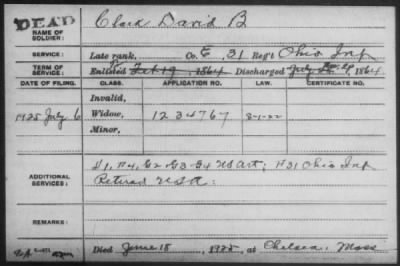 DEAD
NAME OF SOLDIER: Clark David B
SERVICE: Late rank, Co. G, 21 Reg't Ohio Inf
TERM OF SERVICE: Enlisted Feb 19, 1864 Discharged July, 1864
DATE OF FILING. CLASS. APPLICATION NO. LAW. CERTIFICATE NO.
Invalid,
1925 July 6 Widow, 1234767 3-1-22
Minor,
ADDITIONAL SERVICES: G2 G3 G4 US Art; H 31 Ohio Inf
Retired USA.
REMARKS:
Died June 18, 1925, at Chelsea, Mass